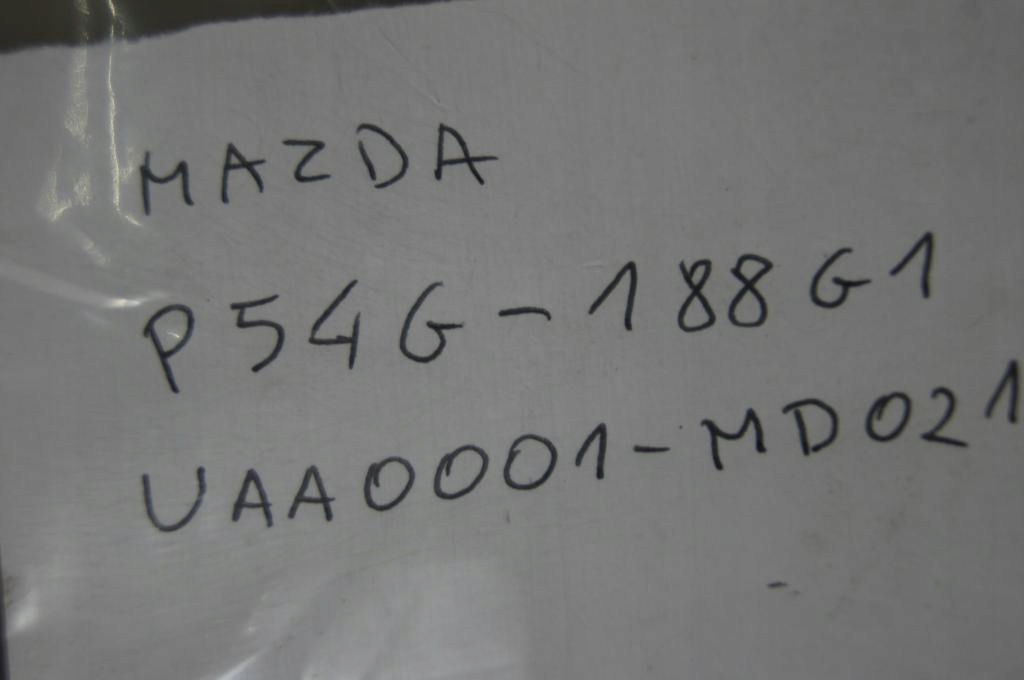 MAZDA
P54G-188G1
UAA0001-MD021